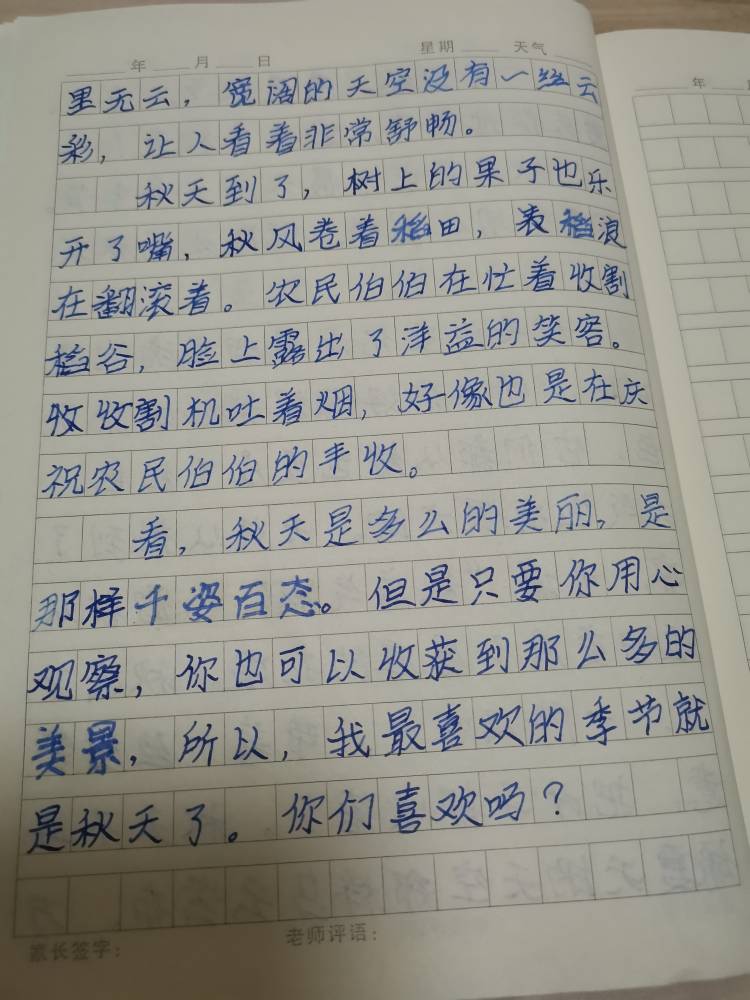 年 月 日 星期 天气
里无云，宽阔的天空没有一丝云
彩，让人看着非常舒畅。
秋天到了，树上的果子也乐
开了嘴，秋风卷着稻田，表稻浪
在翻滚着。农民伯伯在忙着收割
稻谷，脸上露出了洋益的笑容。
收收割机吐着烟，好像也是在庆
祝农民伯伯的丰收。
看，秋天是多么的美丽，是
那样千姿百态。但是只要你用心
观察，你也可以收获到那么多的
美景，所以，我最喜欢的季节就
是秋天了。你们喜欢吗？
家长签字： 老师评语：
年